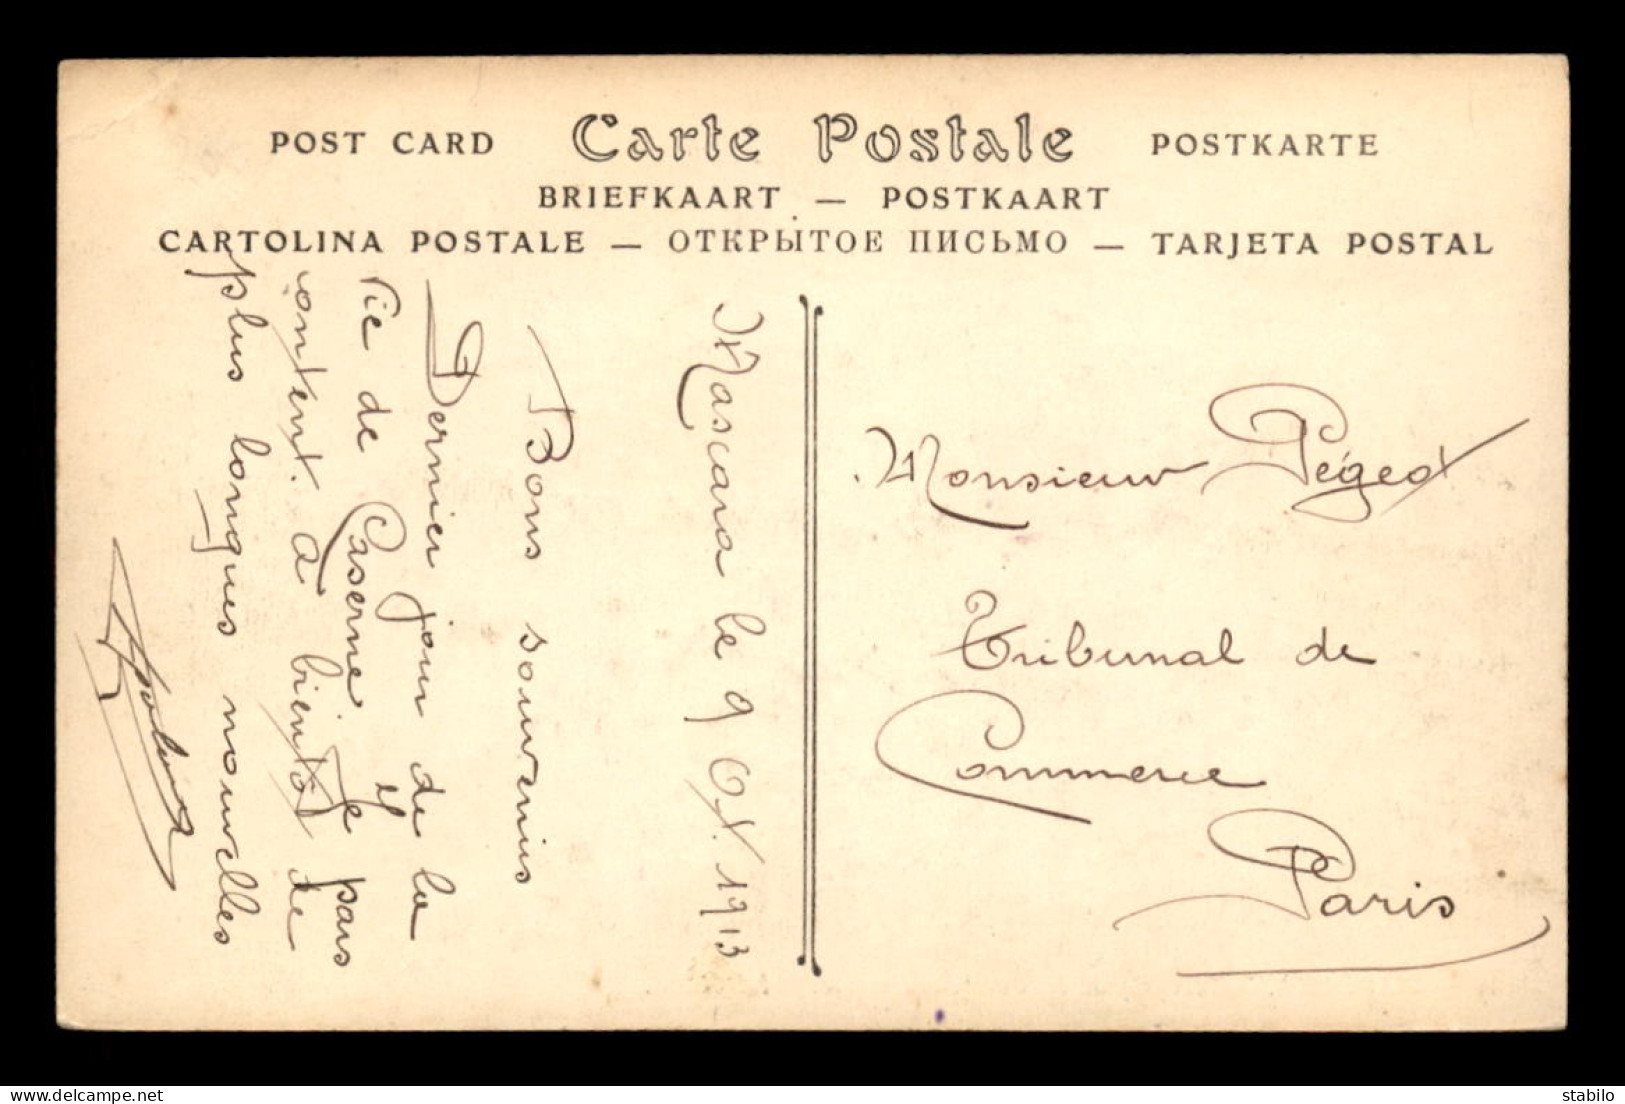 POST CARD Carte Postale POSTKARTE
BRIEFKAART — POSTKAART
CARTOLINA POSTALE — ОТКРЫТОЕ ПИСЬМО — TARJETA POSTAL
Mascara le 9 Oct. 1913
Bons souvenirs
Dernier jour de la
Vie de Caserne. Je pars
content. A bientôt de
plus longues nouvelles
Monsieur Pégeot
Tribunal de
Commerce
Paris
delcampe.net
stabilo